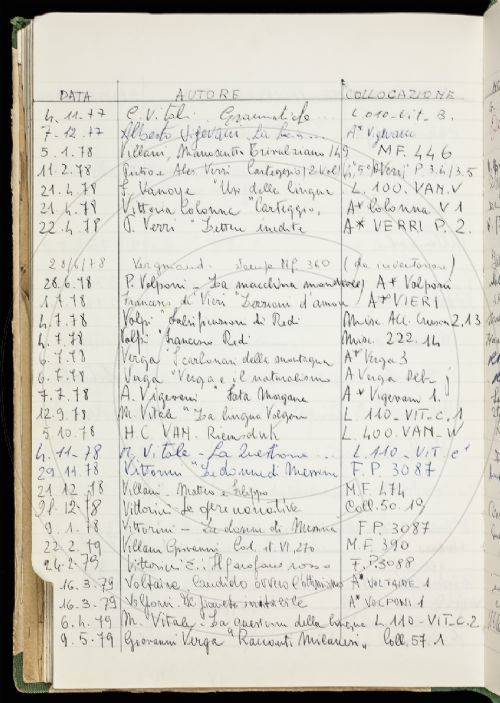 DATA AUTORE COLLOCAZIONE
4.11.77 C. Vitali. Grammatica L. 010-Vit. B.
7-12.77 Alberto Vigevani La A* Vigevani
5.1.78 Villani, Manoscritto Trivulziano 149 MF. 446
11.2.78 Pietro e Ales. Verri Carteggio P. 3.4/3.5
21.4.78 Vanoye "Uso della lingua L. 100. VAN.V
21.4.78 Vittoria Colonna "Carteggio, A* Colonna V 1
22.4.78 P. Verri "Lettere inedite A* VERRI P. 2.
MF. 360 (da inventariare)
28.6.78 P. Volponi - La macchina mondiale A* Volponi
1.7.78 Francesco de Vieri "Lezioni d'amore A* VIERI
4.7.78 Volpi "Falsificazioni di Redi Misc. Acc. Crusca 2.13
4.7.78 Volpi "Francesco Redi Misc. 222.14
6.7.78 Verga "I carbonari della montagna A* Verga 3
6.7.78 Verga "Verga e il naturalismo A Verga
7.7.78 A. Vigevani "Fata Morgana A* Vigevani 1.
12.9.78 M. Vitale "La lingua Volgare L. 110-VIT-C.1
5.10.78 H.C VAN. Riemsdijk L. 400. VAN-W
4.11-78 M. Vitale - La Questione ... L. 110-VIT. C
29.11.78 Vittorini "Le donne di Messina F.P. 3087
21.12.78 Villani - Matteo e Filippo M.F. 474
12.78 Vittorini Le opere narrative Coll. 50.19
9.1.78 Vittorini - Le donne di Messina F.P. 3087
22.2.79 Villani Giovanni Cod. II.VI.270 M.F. 390
24.2.79 Vittorini E.: Il garofano rosso F.P. 3088
16.3.79 Voltaire Candido ovvero l'ottimismo A* VOLTAIRE 1
16.3.79 Volponi. Il pianeta irritabile A* VOLPONI 1
6.4.79 M. Vitale. La questione della lingua L. 110-VIT-C.2
9.5.79 Giovanni Verga "Racconti Milanesi" Coll. 57.1